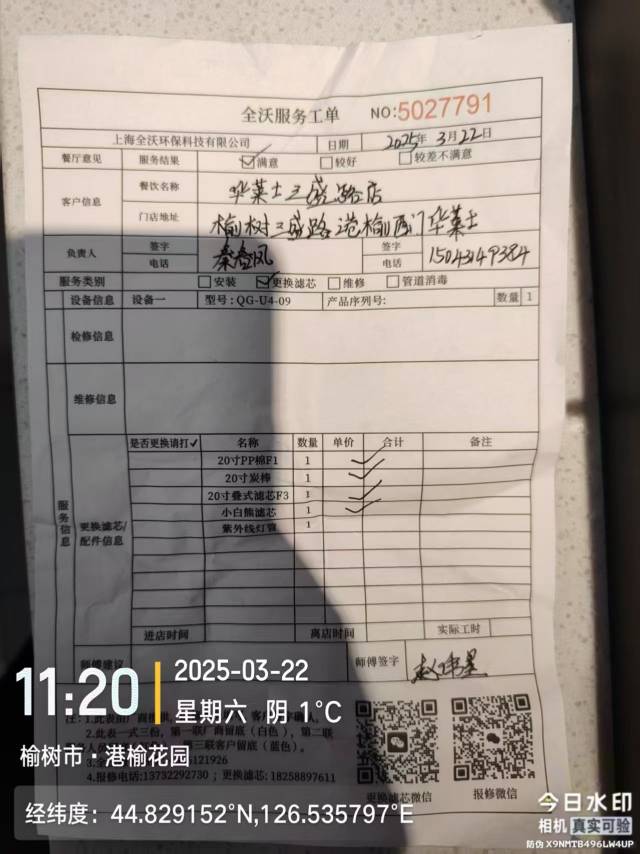 全沃服务工单 NO:5027791
上海全沃环保科技有限公司 日期 2025年3月22日
餐厅意见 服务结果 ☑满意 □较好 □较差不满意
客户信息 餐饮名称 华莱士三盛路店
门店地址 榆树三盛路港榆西门华莱士
负责人 签字 签字
电话 电话 15043149384
服务类别 □安装 ☑更换滤芯 □维修 □管道消毒
设备信息 设备一 型号:QG-U4-09 产品序列号: 数量 1
检修信息
维修信息
服务信息
更换滤芯/配件信息
是否更换请打✓ 名称 数量 单价 合计 备注
20寸PP棉F1 1 ✓
20寸炭棒 1 ✓
20寸叠式滤芯F3 1 ✓
小白熊滤芯 1 ✓
紫外线灯管 1
进店时间 离店时间 实际工时
师傅建议 师傅签字
注:1.此表由厂商提供
2.此表一式三份,第一联厂商留底(白色),第二联
第三联客户留底(蓝色)。
121926
4.报修电话:13732292730 ; 更换滤芯:18258897611
更换滤芯微信 报修微信
11:20
2025-03-22
星期六 阴 1℃
榆树市·港榆花园
经纬度: 44.829152°N,126.535797°E
今日水印
相机 真实可验
防伪 X9NMTB496LW4UP